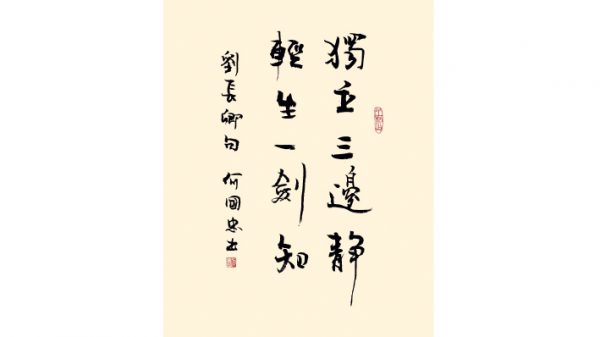 獨立三邊靜
輕生一劍知
劉長卿句 何國忠書